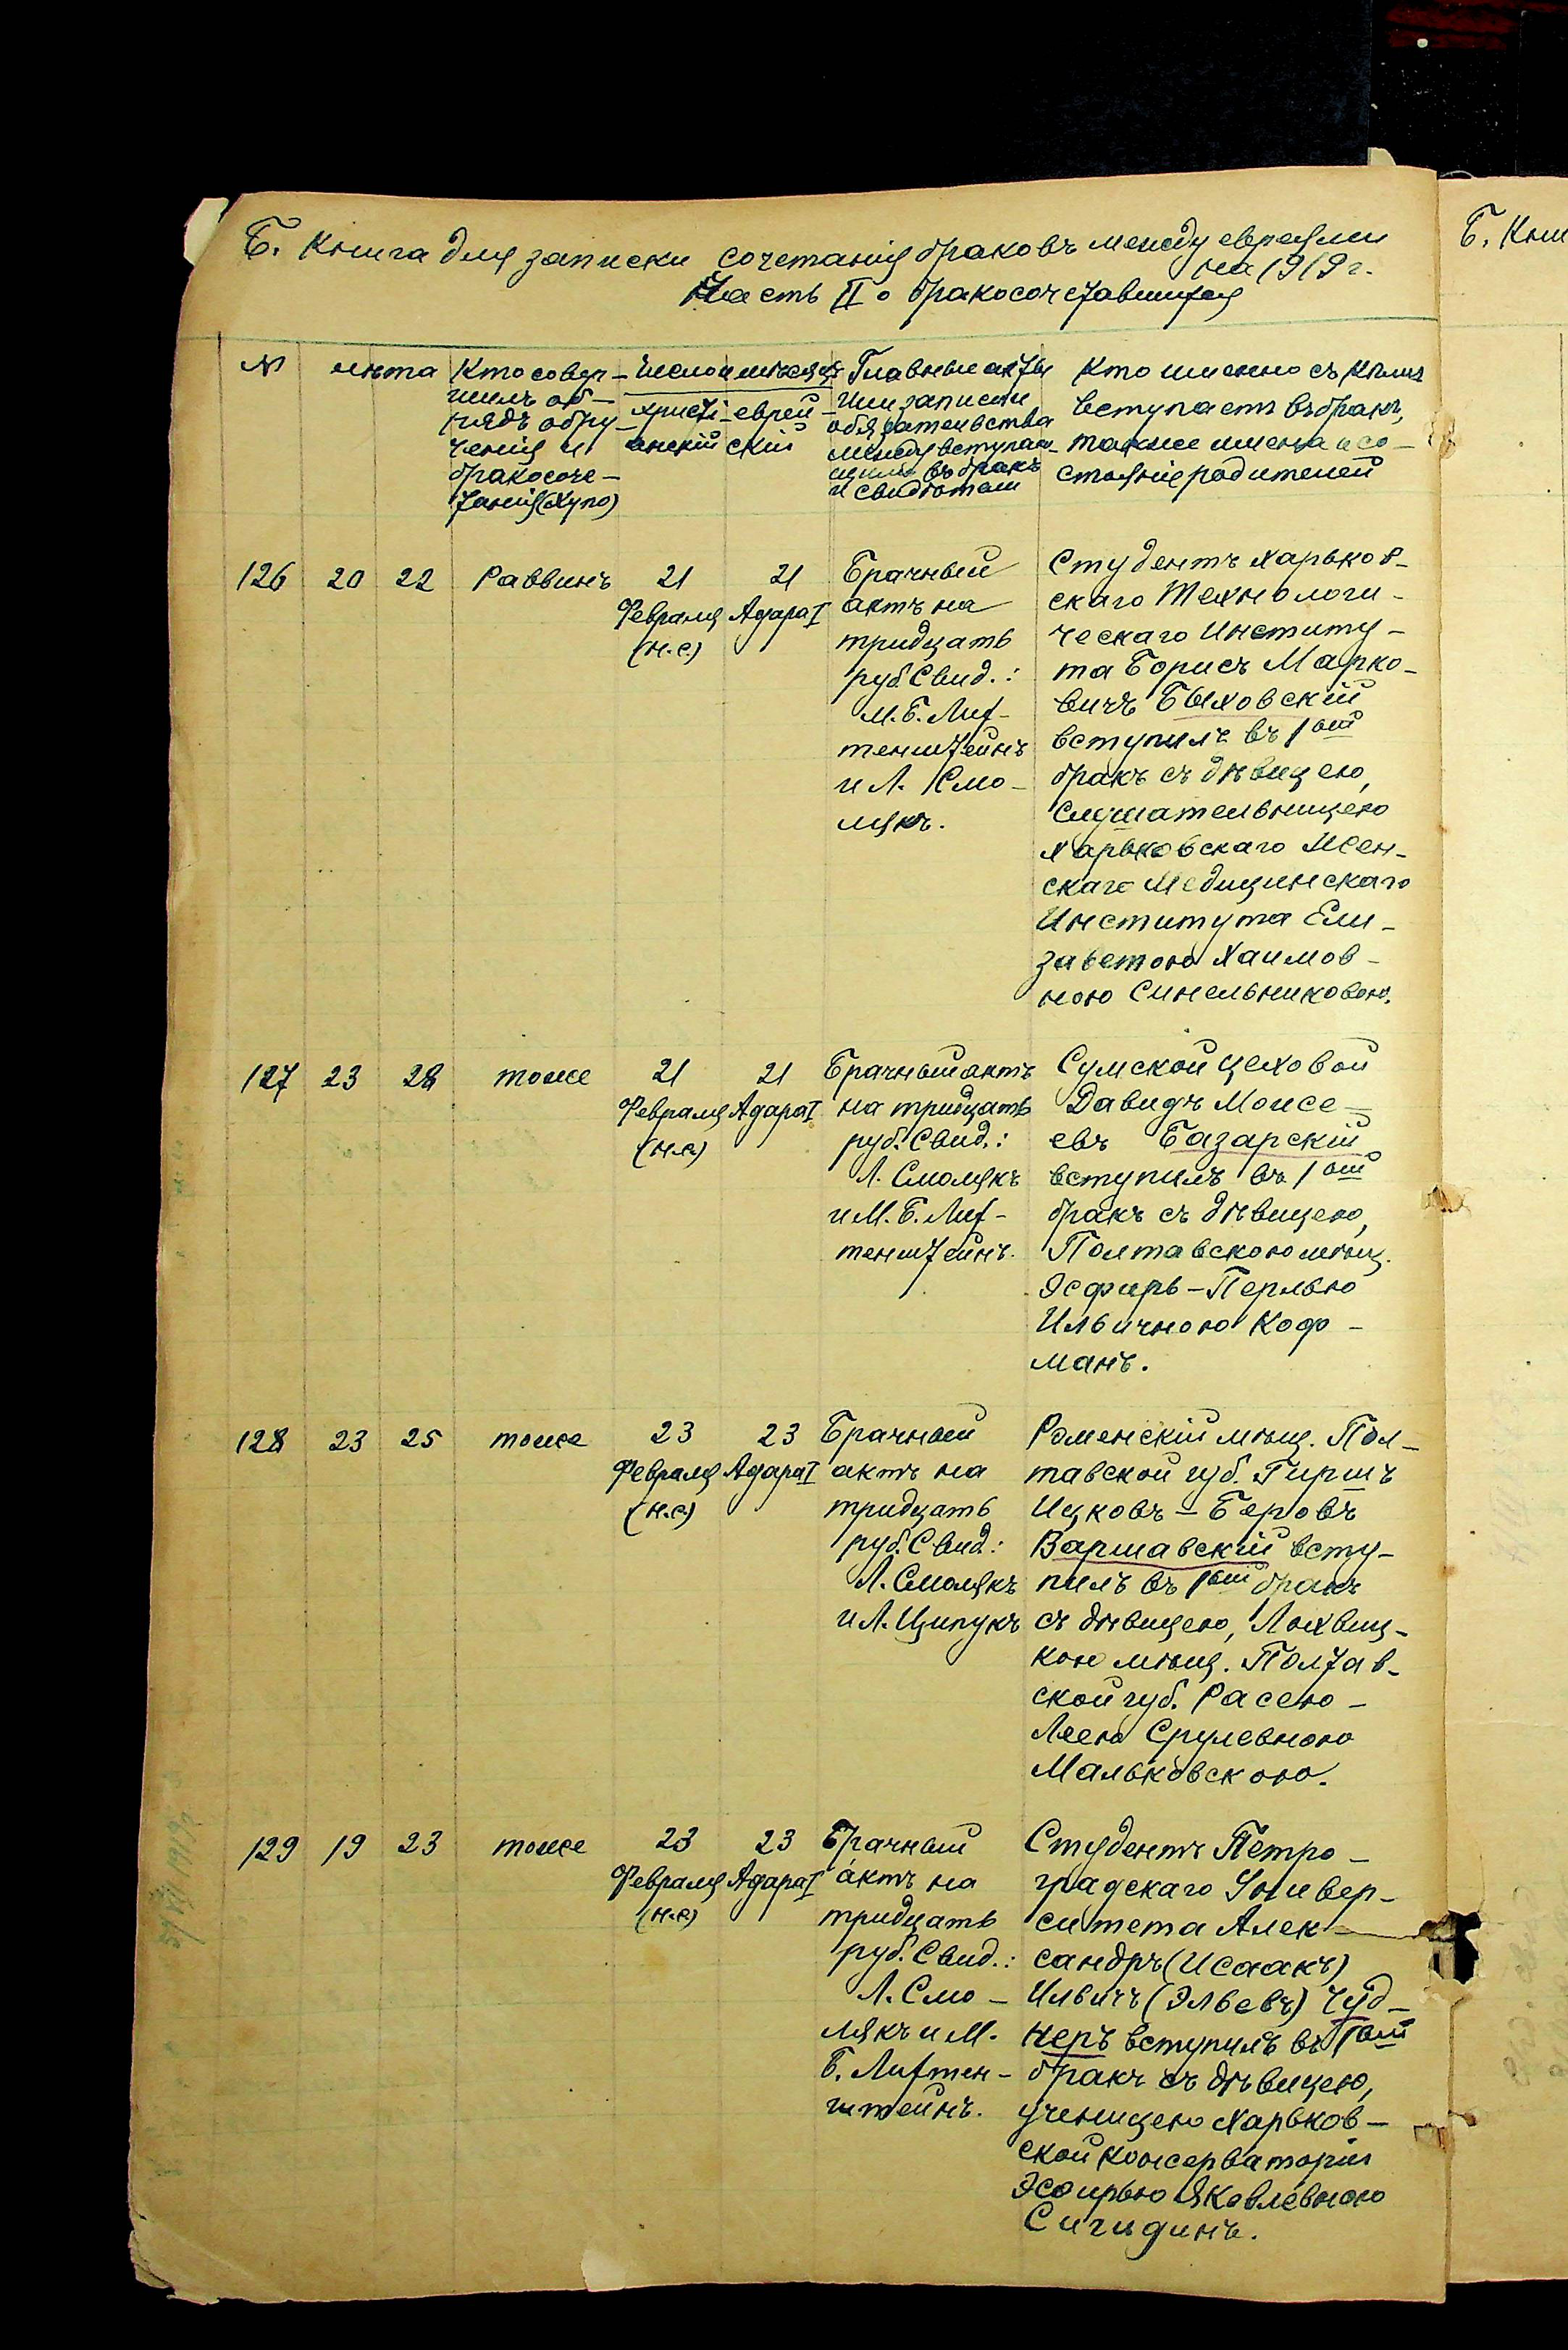 Б. Книга для записки сочетанія браковъ между евреями
на 1919 г.
Часть II о бракосочетавшихся
№
лѣта
Кто совер-
шилъ об-
рядъ обру-
ченія и
бракосоче-
танія (Хупо)
Число и мѣсяцъ
христі-
анскій
еврей-
скій
Главные акты
или записи
обязательства
между вступаю-
щими въ бракъ
и свидѣтели
Кто именно съ кѣмъ
вступаетъ въ бракъ,
также имена и со-
стояніе родителей
126 20 22 Раввинъ
21
Февраля
(н.с.)
21
Адара I
Брачный
актъ на
тридцать
руб. Свид.:
М. Б. Лих-
тенштейнъ
и Л. Смо-
лякъ.
Студентъ Харьков-
скаго Технологи-
ческаго Институ-
та Борисъ Марко-
вичъ Быховскій
вступилъ въ 1ый
бракъ съ дѣвицею,
слушательницею
Харьковскаго Жен-
скаго Медицинскаго
Института Ели-
заветою Хаимов-
ною Синельниковою.
127 23 28 тоже
21
Февраля
(н.с.)
21
Адара I
Брачный актъ
на тридцать
руб. Свид.:
Л. Смолякъ
и М. Б. Лих-
тенштейнъ.
Сумской цеховой
Давидъ Моисе-
евъ Базарскій
вступилъ въ 1ый
бракъ съ дѣвицею,
Полтавскою мѣщ.
Эсфирь-Перлею
Ильичною Коф-
манъ.
128 23 25 тоже
23
Февраля
(н.с.)
23
Адара I
Брачный
актъ на
тридцать
руб. Свид.:
Л. Смолякъ
и Л. Ципукъ
Роменскій мѣщ. Пол-
тавской губ. Гиршъ
Ицковъ-Беровъ
Варшавскій всту-
пилъ въ 1ый бракъ
съ дѣвицею, Лохвиц-
кою мѣщ. Полтав-
ской губ. Расею-
Леею Срулевною
Мальковскою.
129 19 23 тоже
23
Февраля
(н.с.)
23
Адара I
Брачный
актъ на
тридцать
руб. Свид.:
Л. Смо-
лякъ и М.
Б. Лихтен-
штейнъ.
Студентъ Петро-
градскаго Универ-
ситета Алек-
сандръ (Исаакъ)
Ильичъ (Эльевъ) Чуд-
неръ вступилъ въ 1ый
бракъ съ дѣвицею,
ученицею Харьков-
ской консерваторіи
Эсѳирью Яковлевною
Б. Кни